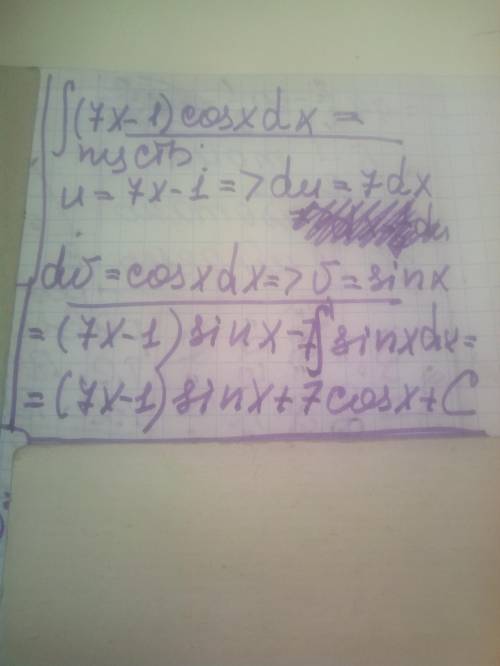 ∫(7x-1)cosxdx=
пусть:
u=7x-1=>du=7dx
dv=cosxdx=>v=sinx
=(7x-1)sinx-7∫sinxdx=
=(7x-1)sinx+7cosx+C